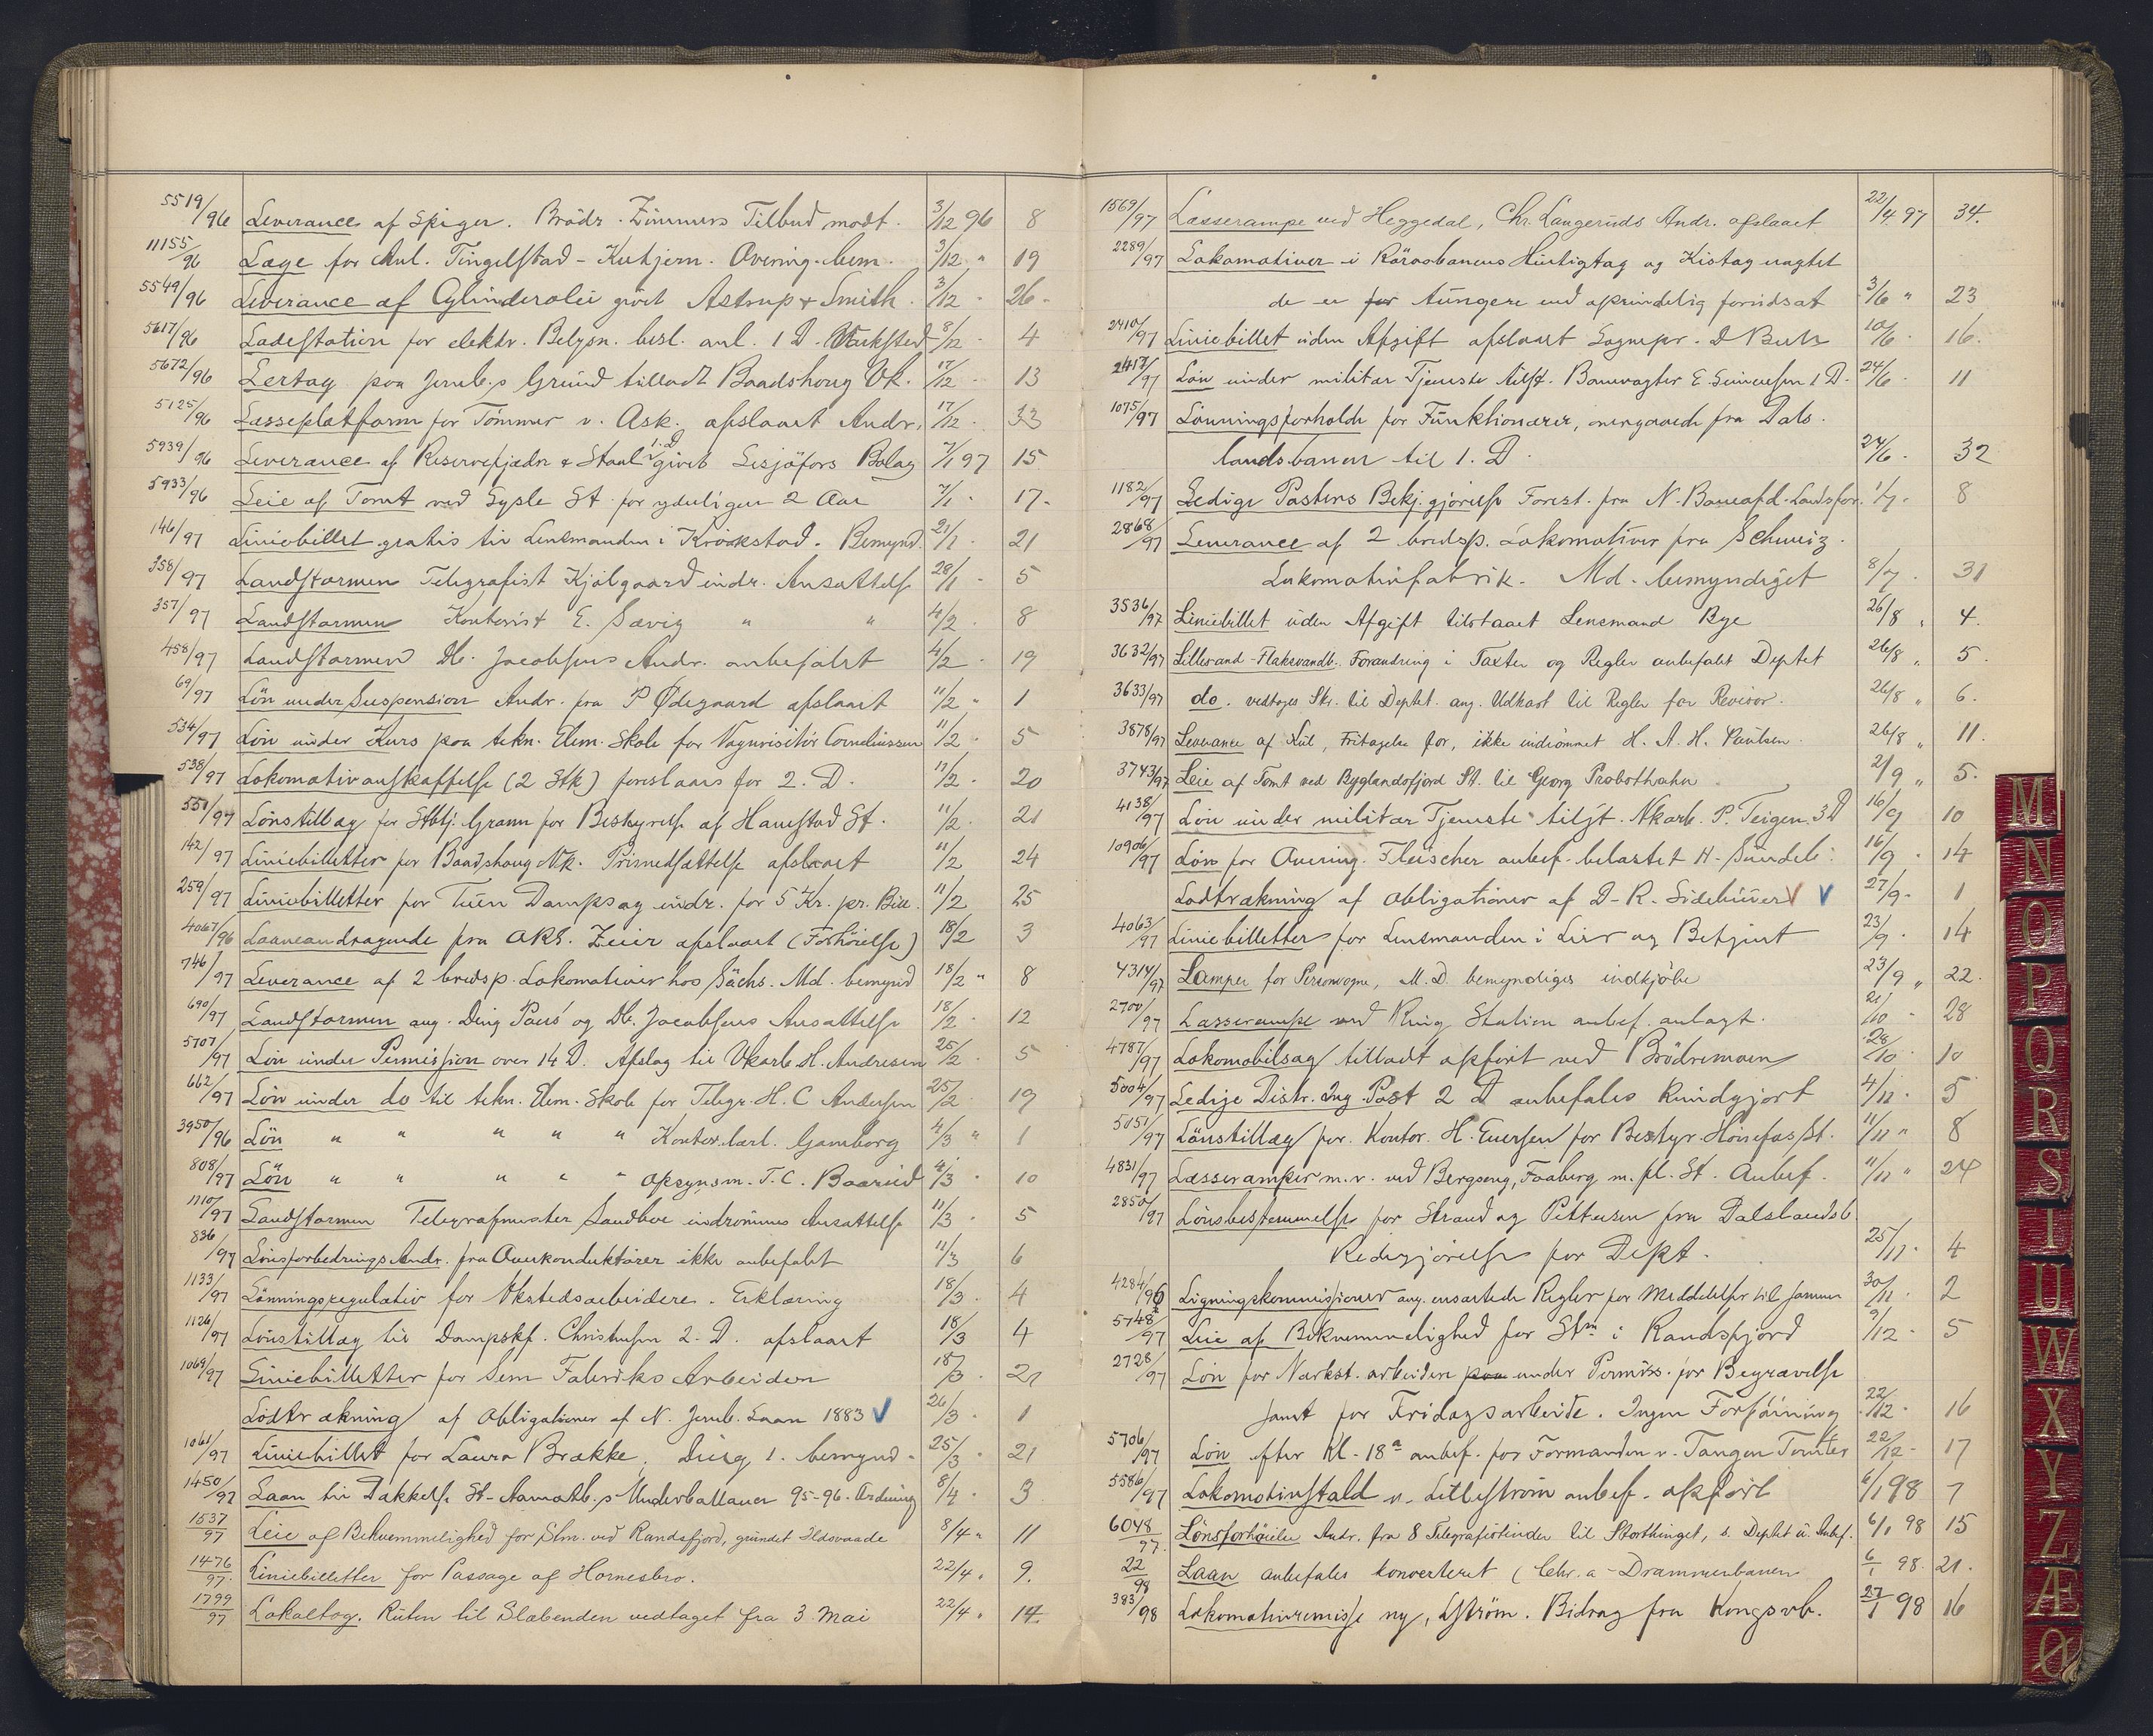 5519/96 Leverance af Spiger. Brödr. Zimmers Tilbud modt. 3/12 96 8
11155/96 Læge for Anl. Tingelstad - Kutjern. Overing. bem. 3/12 " 19
5549/96 Leverance af Cylinderolie givet Astrup & Smith. 3/12 - 26
5617/96 Ladestation for elektr. Belysn. besl. anl. 1 D. Vækksted 8/12 - 4
5672/96 Lertag paa Jernb.s Grund tilladt Baadshoug Vk. 17/12 - 13
5125/96 Læsseplatform for Tömmer v. Ask. afslaaet Andr. 17/12 - 33
5939/96 Leverance af Reservefjædre & Staal 1. D givet Lesjöfors Bolag 7/1 97 15
5933/96 Leie af Tomt ved Sysle St. for yderligere 2 Aar 7/1 - 17
146/97 Liniebillet gratis til Lensmanden i Kraakstad. Bemynd. 21/1 - 21
358/97 Landstormen Telegrafist Kjölgaard indr. Ansættelse 28/1 - 5
357/97 Landstormen Kontorist E. Sævig " " 4/2 - 8
458/97 Landstormen Db. Jacobsens Andr. anbefalet 4/2 - 19
69/97 Lön under Suspension Andr. fra P Ødegaard afslaaet 11/2 " 1
534/97 Lön under Kurs paa tekn. Elem. Skole for Vognvisitör Corneliussen 11/2 - 5
538/97 Lokomotivanskaffelse (2 Stk) foreslaaes for 2. D. 11/2 - 20
551/97 Lönstillæg for Stbtj. Gram for Bestyrelse af Hamstad St. 11/2 - 21
142/97 Liniebilletter for Baadshoug Vk. Prisnedsættelse afslaaet 11/2 24
259/97 Liniebilletter for Tuen Dampsag indr. for 5 Kr. pr. Bill. 11/2 25
4067/96 Laaneandragende fra OKS. Zeier afslaaet (Forhöielse) 18/2 3
746/97 Leverance af 2 bredsp. Lokomotiver hos Sächs. Md. bemynd 18/2 " 8
690/97 Landstormen ang. Ding Paus og Db. Jacobsens Ansættelse 18/2 - 12
5707/97 Lön under Permission over 14 D. Afslag til Vkarb. H. Andresen 25/2 - 5
662/97 Lön under do til tekn. Elem. Skole for Telegr. H. C Andersen 25/2 19
3950/96 Lön " " " " " Kontor. Carl. Gamborg 4/3 " 1
808/97 Lön " " " " " Opsynsm. T. C. Baarud 4/3 - 10
1110/97 Landstormen Telegrafmester Sandboe indrömmes Ansættelse 11/3 - 5
836/97 Lönsforbedrings Andr. fra Overkonduktörer ikke anbefalet 11/3 6
1133/97 Lönningsregulativ for Vkstedsarbeidere. Erklæring 18/3 - 4
1126/97 Lönstillæg til Dampskf. Christensen 2. D. afslaaet 18/3 4
1069/97 Liniebilletter for Sem Fabriks Arbeidere 18/3 - 21
Lodtrækning af Obligationer af N. Jernb. Laan 1883 V 26/3 - 1
1061/97 Liniebillet for Laura Brække, 1. bemynd - 25/3 - 21
1450/97 Laan til Dækkelse St. Underballancer 95-96. Ordning 8/4 - 3
1537/97 Leie af Bekvemmelighed for Stm. ved Randsfjord, grundet Ildsvaade 8/4 " 11
1476/97 Liniebilletter for Passage af Hornesbro. 22/4 " 9.
1799/97 Lokaltog. Ruten til Slæbenden vedtaget fra 3. Mai 22/4 " 14
1569/97 Læsserampe ved Heggedal, Chr. Langeruds Andr. afslaaet 22/4 97 34
2289/97 Lokomotiver i Rörosbanens Hurtigtog og Kistog uagtet
de er for tungere end oprindelig forudsat 3/6 " 23
2410/97 Liniebillet uden Afgift afslaaet Sognepr. D Buth 10/6 - 16.
2417/97 Lön under militær Tjeneste tilst. Banevogter E 1 D. 24/6 - 11
1075/97 Lönningsforholde for Funktionærer, overgaaede fra Dals-
landsbanen til 1. D. 24/6 - 32
1182/97 Ledige Posters Bekj. gjörelse Forest. fra N. Baneafd. Landsfor. 1/7 - 8
2868/97 Leverance af 2 bredsp. Lokomotiver fra Schweiz.
Lokomotivfabrik. Md. bemyndiget 8/7 - 31
3536/97 Liniebillet uden Afgift tilstaaet Lensmand Bye 26/8 " 4.
3632/97 Lillesand-Flaksvandb. Forandring i Taxter og Regler anbefalet Deptet 26/8 " 5.
3633/97 do. vedtages Skr. til Deptet. ang. Udkast til Regler for Revisor. 26/8 " 6.
3878/97 Leverance af Kul, Fritagelse for, ikke indrömmet H. A. H. Paulsen. 26/8 " 11.
3743/97 Leie af Tomt ved Byglandsfjord St. til Georg Probsthahn 2/9 " 5.
4138/97 Lön under militær Tjeneste tilst. Vkarb. P. Teigen 3 D 16/9 10
10906/97 Lön for Overing. Fleischer anbef. belastet H-Sundeb. 16/9 - 14
Lodtrækning af Obligationer af D-R. Sidelinier V V 27/9 - 1
4063/97 Liniebilletter for Lensmanden i Lier og Betjent 23/9 - 14
4314/97 Lamper for Personvogne, M. D. bemyndiges indkjöbe 23/9 " 22.
2700/97 Læsserampe ved Ring Station anbef. anlagt. 21/10 - 28
4787/97 Lokomobilsag tilladt opfört ved Brödremoen 28/10 - 10
5004/97 Ledige Distr. Ing. Post 2 D anbefales kundgjort 4/11 - 5
5051/97 Lönstillæg for Kontor. H. Evensen for Bestyr. Hönefos St. 11/11 " 8
4831/97 Læsseramper m. v. ved Bergseng, Faaberg m. fl. St. Anbef. 11/11 " 24
2850/97 Lönsbestemmelse for Strand og Pettersen fra Dalslandsb
Redegjörelse for Dept. 25/11 - 4
4284/96 Ligningskommissioner ang. ensartede Regler for Meddelelser til samme 30/11 - 2
5748/97 Leie af Bekvemmelighed for Stm i Randsfjord 9/12 - 5
2728/97 Lön for Værkst. arbeidere paa under Permiss. for Begravelse
samt for Fridagsarbeide. Ingen Forföining 22/12 - 16
5706/97 Lön efter Kl. 18a anbef. for Formanden v. Tangen Tomter 22/12 - 17
5586/97 Lokomotivstald v. Lilleström anbef. opfört 6/1 98 7
6048/97 Lönsforhöielse Andr. fra 8 Telegrafistinder til Storthinget, s. Deptet u. Anbef. 6/1 98 15
22/98 Laan anbefales konverteret (Chr.a-Drammenbanen 6/1 98 21.
383/98 Lokomotivremisse ny, Lström. Bidrag fra Kongsvb. 27/1 98 16
M
N
O
P
Q
R
S
T
U
W
X
Y
Z
Æ
Ø